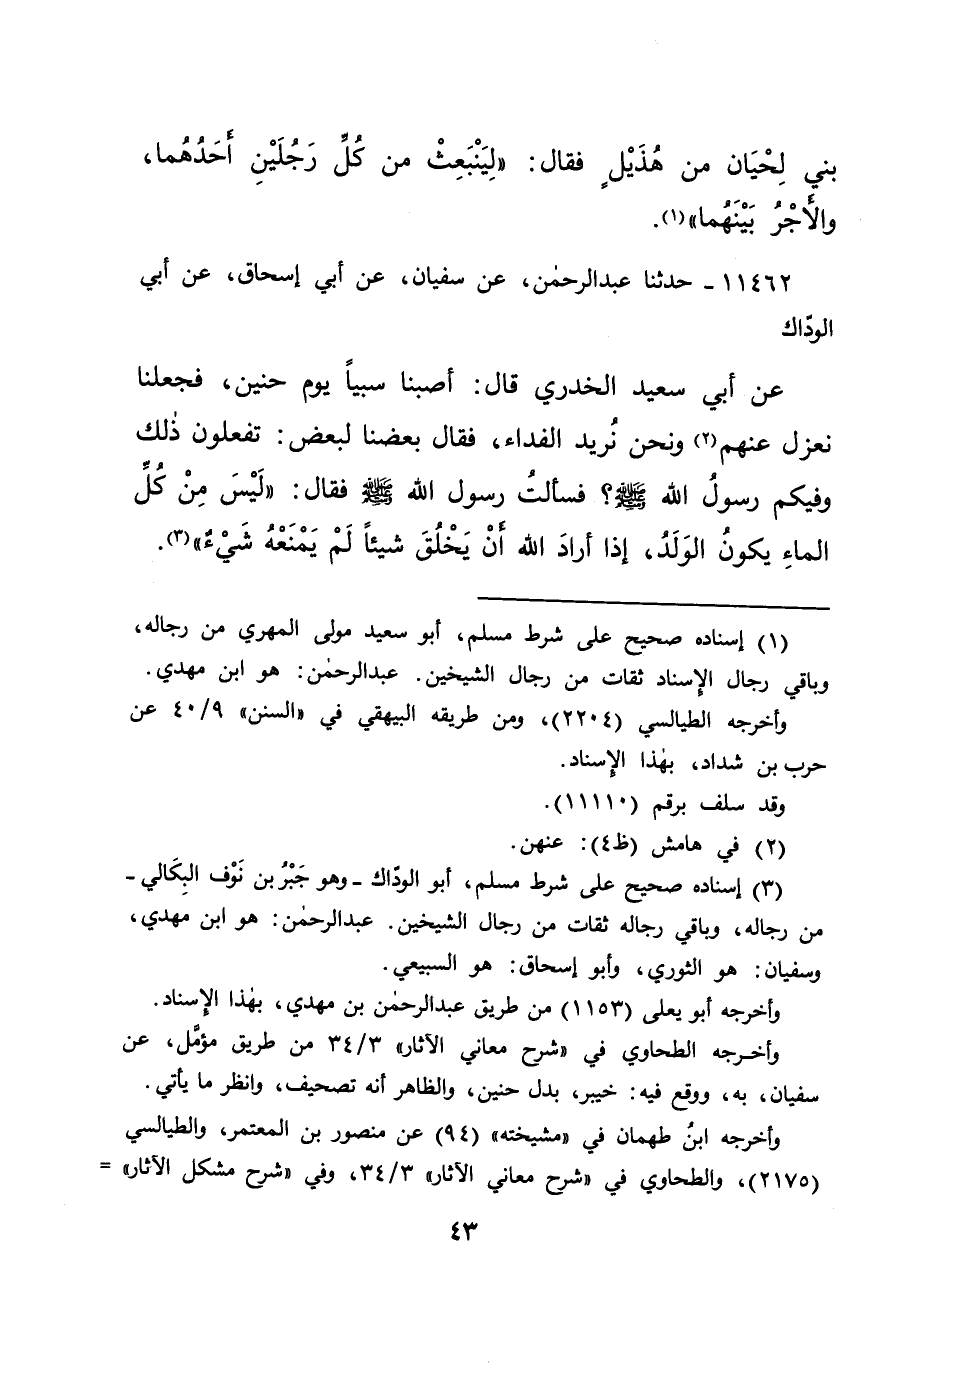 بني لِحْيَان من هُذَيْلٍ فقال: «لِيَنْبَعِثْ من كُلِّ رَجُلَيْنِ أَحَدُهُما،
والأَجْرُ بَيْنَهُما»(١).
١١٤٦٢ ـ حدثنا عبدالرحمٰن، عن سفيان، عن أبي إسحاق، عن أبي
الودّاك
عن أبي سعيد الخدري قال: أصبنا سبياً يوم حنين، فجعلنا
نعزل عنهم(٢) ونحن نُريد الفداء، فقال بعضنا لبعض: تفعلون ذٰلك
وفيكم رسولُ الله ﷺ؟ فسألتُ رسول الله ﷺ فقال: «لَيْسَ مِنْ كُلِّ
الماءِ يكونُ الوَلَدُ، إذا أرادَ الله أَنْ يَخْلُقَ شيئاً لَمْ يَمْنَعْهُ شَيْءٌ»(٣).
(١) إسناده صحيح على شرط مسلم، أبو سعيد مولى المهري من رجاله،
وباقي رجال الإسناد ثقات من رجال الشيخين. عبدالرحمٰن: هو ابن مهدي.
وأخرجه الطيالسي (٢٢٠٤)، ومن طريقه البيهقي في «السنن» ٤٠/٩ عن
حرب بن شداد، بهٰذا الإسناد.
وقد سلف برقم (١١١١٠).
(٢) في هامش (ظ٤): عنهن.
(٣) إسناده صحيح على شرط مسلم، أبو الودّاك ـ وهو جَبْرُ بن نَوْف البِكَالي ـ
من رجاله، وباقي رجاله ثقات من رجال الشيخين. عبدالرحمٰن: هو ابن مهدي،
وسفيان: هو الثوري، وأبو إسحاق: هو السبيعي.
وأخرجه أبو يعلى (١١٥٣) من طريق عبدالرحمٰن بن مهدي، بهٰذا الإسناد.
وأخرجه الطحاوي في «شرح معاني الآثار» ٣٤/٣ من طريق مؤمَّل، عن
سفيان، به، ووقع فيه: خيبر، بدل حنين، والظاهر أنه تصحيف، وانظر ما يأتي.
وأخرجه ابنُ طهمان في «مشيخته» (٩٤) عن منصور بن المعتمر، والطيالسي
(٢١٧٥)، والطحاوي في «شرح معاني الآثار» ٣٤/٣، وفي «شرح مشكل الآثار» =
٤٣